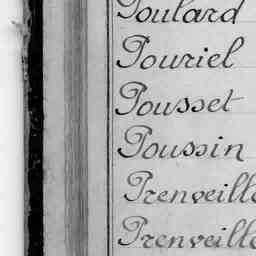 Poulard
Pouriel
Pousset
Poussin
Prenveille
Prenveille